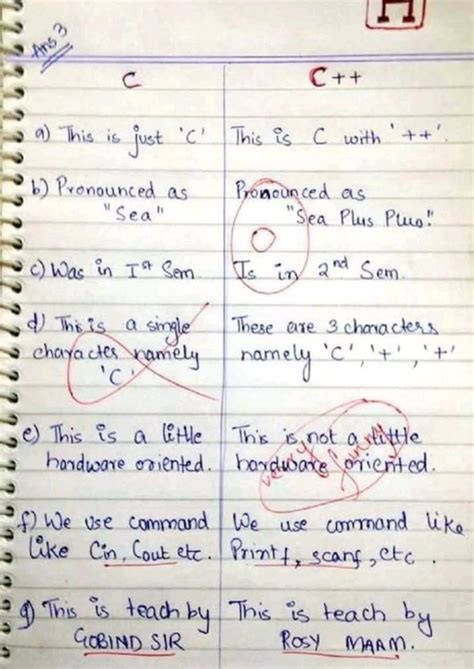 H
Ans 3
C
C++
a) This is just 'C'
This is C with '++'.
b) Pronounced as
"Sea"
Pronounced as
"Sea Plus Plus."
0
c) Was in Ist Sem
Is in 2nd Sem.
d) This is a single
character namely
'C'
These are 3 characters
namely 'C', '+', '+'
e) This is a little
hardware oriented.
This is not a little
hardware oriented.
very funny
f) We use command
like Cin, Cout etc.
We use command like
Printf, scanf, etc.
g) This is teach by
GOBIND SIR
This is teach by
ROSY MAAM.